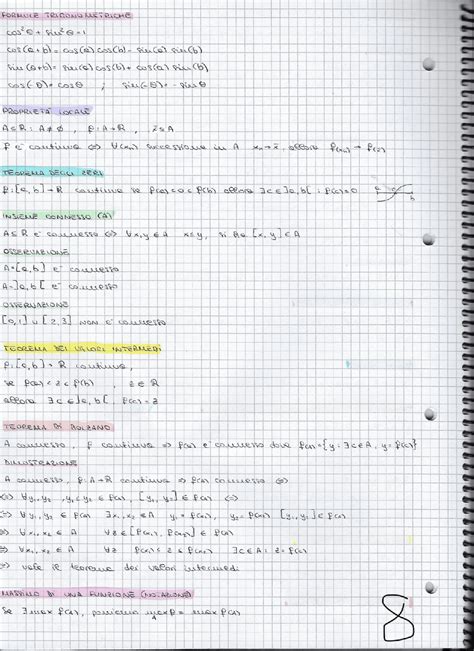 FORMULE TRIGONOMETRICHE
cos²θ + sin²θ = 1
cos(a+b) = cos(a) cos(b) - sin(a) sin(b)
sin(a+b) = sin(a) cos(b) + cos(a) sin(b)
cos(-θ) = cosθ ; sin(-θ) = - sinθ
PROPRIETÀ LOCALE
A⊆R : A≠∅ , f: A→R , x̄∈A
f è continua ⇔ ∀(xn) successione in A xn→x̄, allora f(xn) → f(x̄)
TEOREMA DEGLI ZERI
f: [a,b]→R continua se f(a)<0<f(b) allora ∃c∈]a,b[ : f(c)=0
b
INSIEME CONNESSO (A)
A⊆R è connesso ⇔ ∀x,y∈A x≤y, si ha [x,y]⊂A
OSSERVAZIONE
A=[a,b] è connesso
A=]a,b[ è connesso
OSSERVAZIONE
[0,1] ∪ [2,3] NON È CONNESSO
TEOREMA DEI VALORI INTERMEDI
f: [a,b]→R continua,
se f(a) < z < f(b) , z∈R
allora ∃c∈]a,b[, f(c)=z
TEOREMA DI BOLZANO
A connesso, f continua ⇒ f(A) è connesso dove f(A)={y: ∃c∈A, y=f(c)}
DIMOSTRAZIONE
A connesso, f: A→R continua ⇒ f(A) connesso ⇔
⇔ ∀y1, y2 , y1<y2 ∈ f(A) , [y1, y2] ⊂ f(A) ⇔
⇔ ∀y1, y2 ∈ f(A) ∃x1, x2 ∈ A y1 = f(x1), y2 = f(x2) [y1, y2] ⊂ f(A)
⇒ ∀x1, x2 ∈ A ∀z∈[f(x1), f(x2)] ∈ f(A)
⇒ ∀x1, x2 ∈ A ∀z f(x1) ≤ z ≤ f(x2) ∃c∈A: z=f(c)
⇒ vale il teorema dei valori intermedi
MASSIMO DI UNA FUNZIONE (NOTAZIONE)
Se ∃ max f(A), poniamo max f = max f(A)
A
8